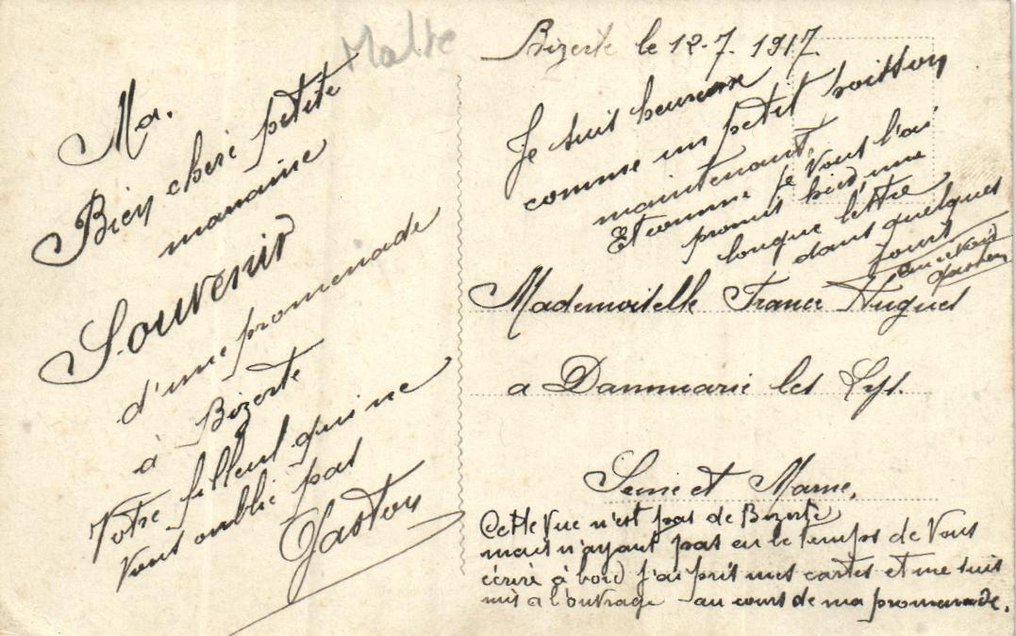 Malte
Ma.
Bien cheri petite
maraine
Souvenir
d'une promenade
à Bizerte
Votre filleul qui ne
vous oublie pas
Gaston
Bizerte le 12-7. 1917
Je suis heureux
comme un petit poisson
maintenant,
Et comme je vous l'ai
promis bird une
longue lettre
dans quelques
jours
au revoir
Gaston
Mademoiselle France Hugues
a Dammarie les Lys.
Seine et Marne,
Cette vue n'est pas de Bizerte
mais n'ayant pas eu le temps de vous
écrire à bord j'ai pris mes cartes et me suis
mis a l'ouvrage au cours de ma promenade.